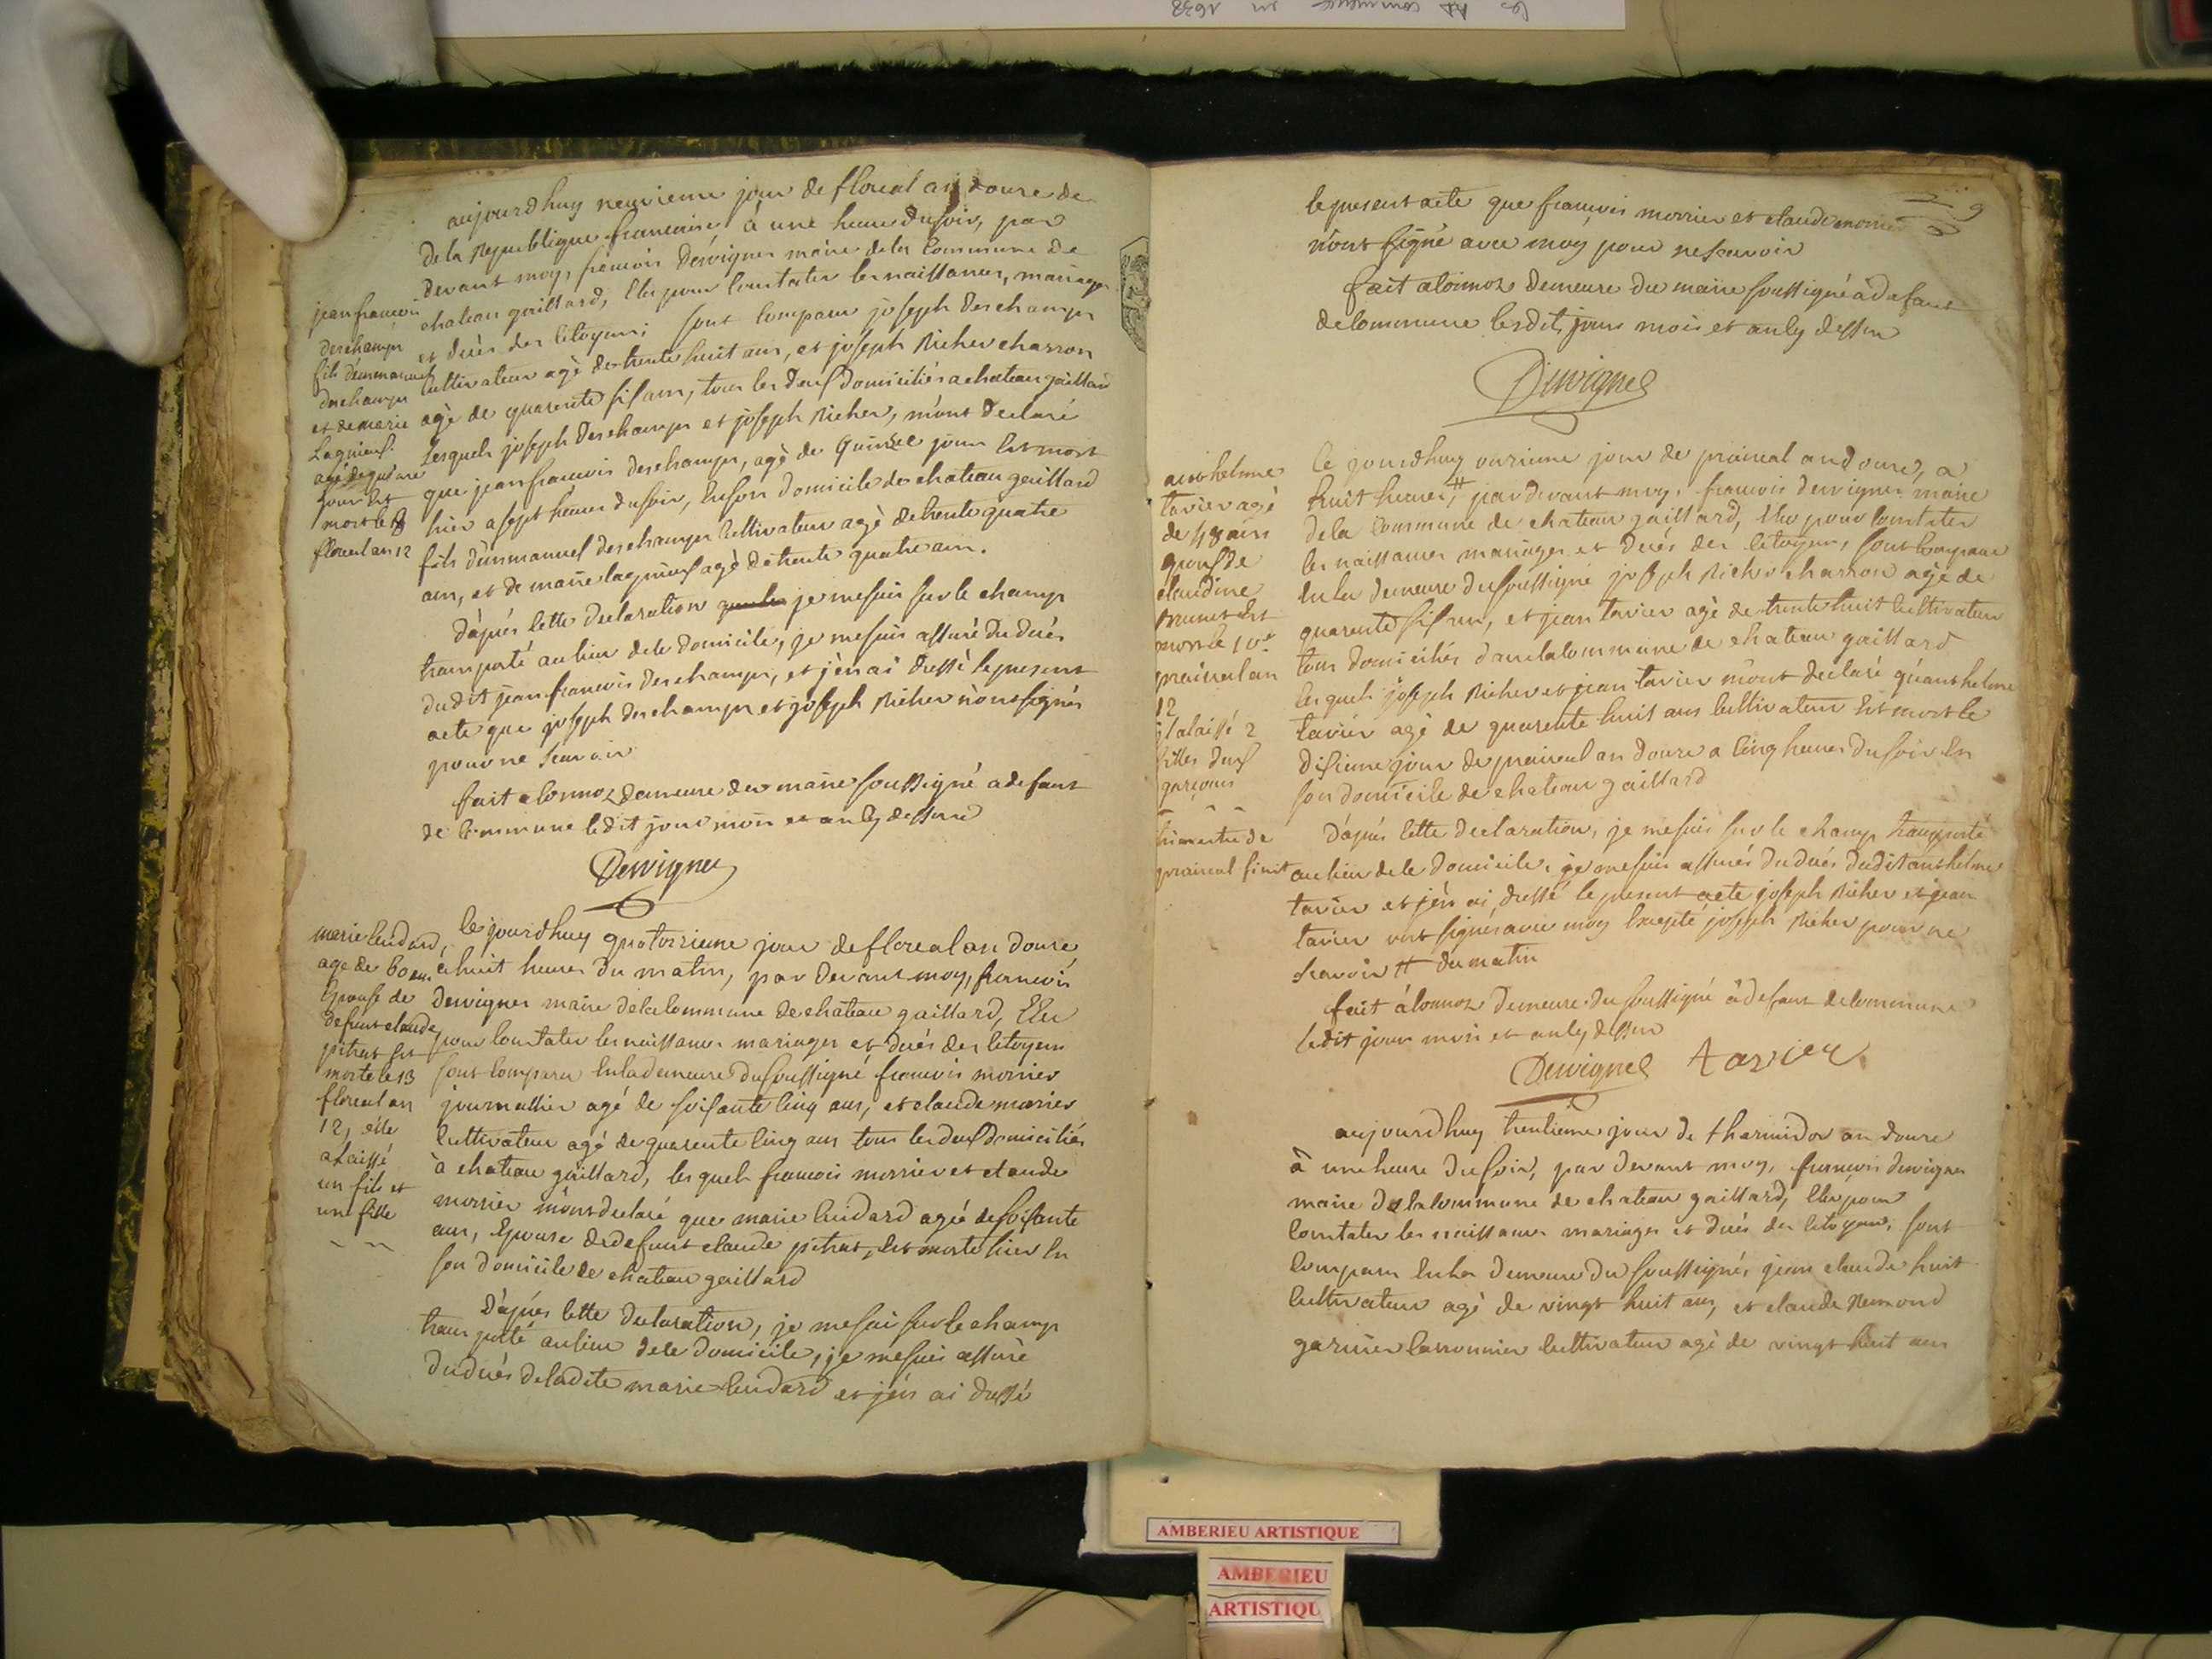 aujourdhuy neuvieme jour de floreal an douze de
de la Republique francoise, à une heure dusoir, par
devant moy, francois Dervignes maire dela Commune de
chateau gaillard, Elu pour Constater les naissances, mariages
et deces des Citoyens; sont Comparu joseph Deschamps
Cultivateur agé de trente huit ans, et joseph Richer charron
agé de quarente six ans, tous les deux domiciliés a chateau gaillard
Lesquels joseph Deschamps et joseph Richer, m'ont declaré
que jean francois deschamps, agé de quinze jours Est mort
hier a sept heures dusoir, En son domicile de chateau gaillard
fils d'emmanuel deschamps Cultivateur agé de trente quatre
ans, et de marie lagnieux agé de trente quatre ans.
D'après Cette declaration je mesuis sur le champ
transporté au lieu de Ce domicile, je mesuis assuré du déces
dudit jean francois deschamps, et j'en ai dressé lepresent
acte que joseph deschamps et joseph Richer n'ont signés
pour ne scavoir
fait a Cormoz demeure du maire soussigné a defaut
de Commune Ledit jour mois et an Cy dessus
Dervignes
jean francois
deschamps
fils d'emmanuel
deschamps
et de marie
Lagnieux
agé de quinze
jours Est
mort le 8
floreal an 12
Ce jourdhuy quatorzieme jour de floreal an douze
à huit heures du matin, par devant moy, francois
Dervignes maire dela Commune de chateau gaillard, Elu
pour Constater les naissances mariages et décés des Citoyens
sont Comparu En la demeure du soussigné francois morrier
journallier agé de soisante Cinq ans, et claude morrier
Cultivateur agé de quarente Cinq ans tous les deux domiciliés
à chateau gaillard, les quels francois morrier et claude
morrier m'ont declaré que marie Cuidard agée de soisante
ans, Epouse de defunt claude pitrat, Est morte hier En
son domicile de chateau gaillard
D'après Cette declaration, je mesuis sur le champ
transporté au lieu de Ce domicile, je mesuis assuré
du décés de ladite marie Cuidard et j'en ai dressé
marie Cuidard,
agé de 60 ans
Epouse de
defunt claude
pitrat Est
morte le 13
floreal an
12, elle
a laissé
un fils et
une fille
9
lepresent acte que francois morrier et claude morrier
n'ont signé avec moy pour ne scavoir
fait a Cormoz demeure du maire soussigné à defaut
de Commune Lesdits jours mois et an Cy dessus
Dervignes
Ce jourdhuy onzieme jour de prairial an douze, a
huit heures, # pardevant moy, francois dervignes maire
dela Commune de chateau gaillard, Elu pour Constater
les naissances mariages et décés des Citoyens, sont Comparu
En la demeure du soussigné joseph Richer charron agé de
quarente six ans, et jean tavier agé de trente huit Cultivateur
tous domiciliés dans la Commune de chateau gaillard
les quels joseph Richer et jean tavier m'ont declaré qu'anthelme
tavier agé de quarente huit ans Cultivateur Est mort le
disieme jour de prairial an douze a Cinq heures du soir En
son domicile de chateau gaillard
D'après Cette declaration, je mesuis sur le champ transporté
au lieu de Ce domicile, je mesuis assurés du décés dudit anthelme
tavier et j'en ai, dressé le present acte joseph Richer et jean
tavier ont signés avec moy Excepté joseph Richer pour ne
scavoir # du matin
fait à Cormoz demeure du soussigné à defaut de Commune
Ledit jour mois et an Cy dessus
Dervignes tavier
anthelme
tavier agé
de 48 ans
Epoux de
claudine
brunet Est
mort le 10e
prairial an
12
il a laissé 2
filles deux
garçons
trimestre de
prairial finit
aujourdhuy trentieme jour de thermidor an douze
à une heure du soir, par devant moy, francois dervignes
maire dela Commune de chateau gaillard, Elu pour
Constater les naissances mariages et décés des Citoyens, sont
Comparu En la demeure du soussigné, jean claude huit
Cultivateur agé de vingt huit ans, et claude Remond
garnier Cultivateur agé de vingt huit ans
AMBERIEU ARTISTIQUE
AMBERIEU
ARTISTIQU